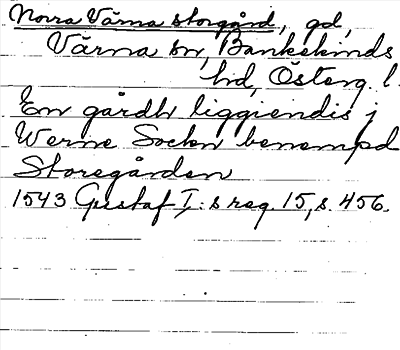 Norra Värna storgård, gd,
Värna sn, Bankekinds
hd, Österg. l.
En gårdh liggiendis j
Werne Sockn benempd
Storegården
1543 Gustaf I:s reg. 15, s. 456.